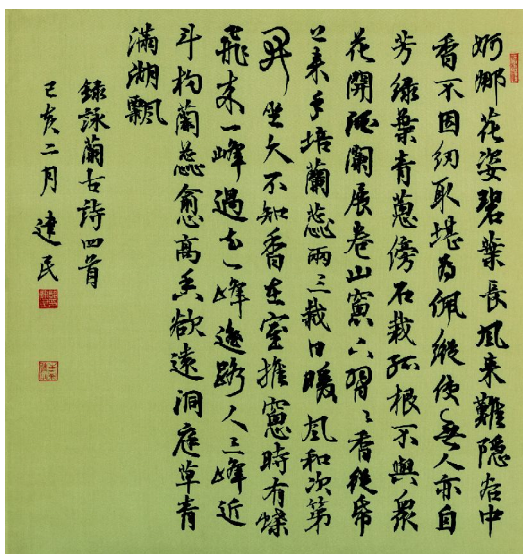 婀娜花姿碧葉長風來難隱谷中
香不因紉取堪為佩縱使無人亦自
芳綠葉青蔥傍石栽孤根不與眾
花開酒闌展卷山窗下習〻香從紙
上來手培蘭蕊兩三栽日暖風和次第
開坐久不知香在室推窗時有蝶
飛來一峰過去一峰遙踏人三峰近
斗杓蘭蕊愈高香欲遠洞庭草青
滿湖飄
錄詠蘭古詩四首
己亥二月 建民